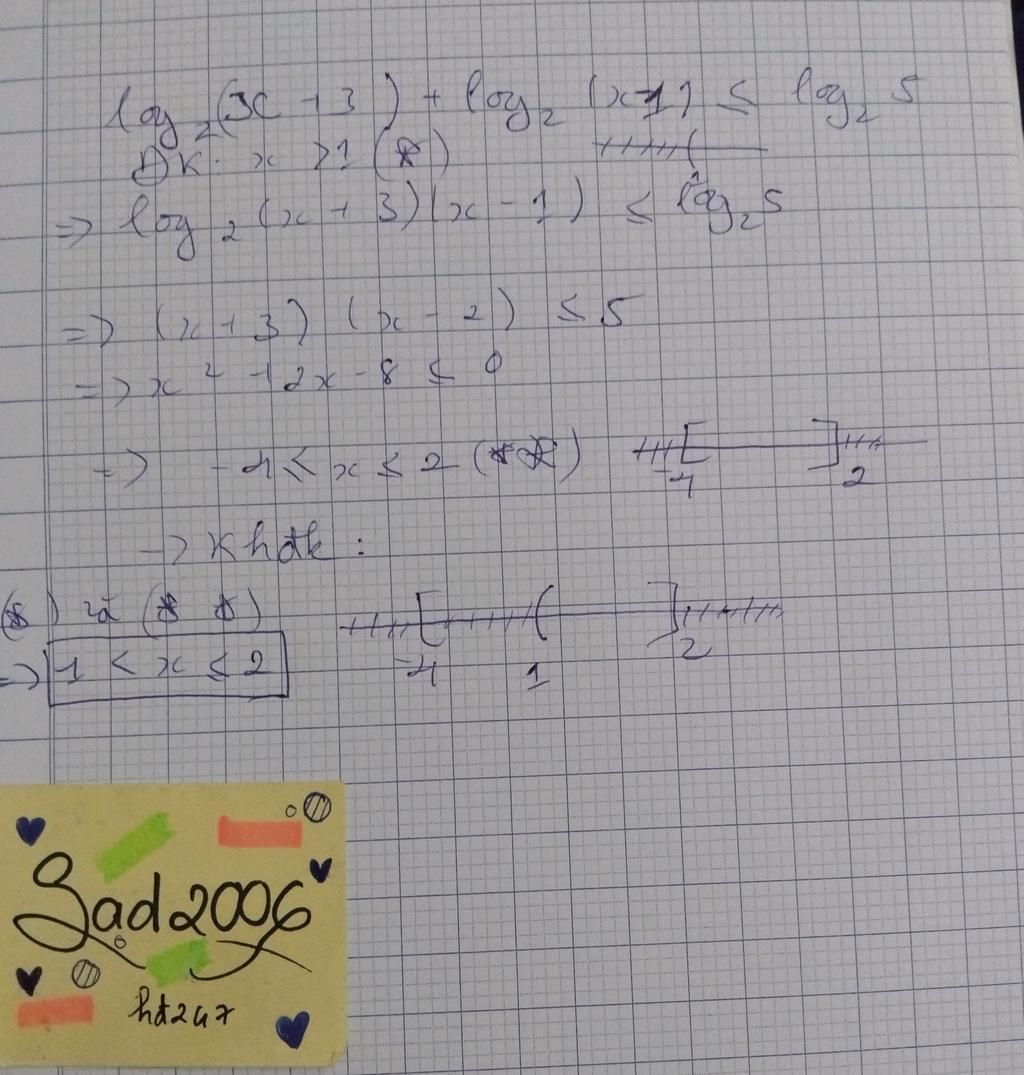 log₂(x + 3) + log₂(x - 1) ≤ log₂ 5
Đk: x > 1 (*)
1
=> log₂(x + 3)(x - 1) ≤ log₂5
=> (x + 3) (x - 2) ≤ 5
=> x² + 2x - 8 ≤ 0
=> -4 ≤ x ≤ 2 (**)
-4 2
-> K h đk :
(*) và (* *)
-4 1 2
=> 1 < x ≤ 2
Sad2006
hd247